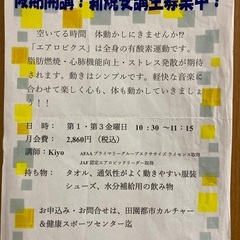 阪期開講！新規受講生募集中！
空いてる時間　体動かしにきませんか⁉
「エアロビクス」は全身の有酸素運動です。
脂肪燃焼・心肺機能向上・ストレス発散が期待
されます。動きはシンプルです。軽快な音楽に
合わせて楽しく心も、体も動かしていきましょ
う！！
日　時：　第１・第３金曜日　10：30 ～11：15
月会費：　2,860円（税込）
講師：Kiyo　AFAA プライマリーグループエクササイズ ライセンス取得
JAF 認定エアロビックリーダー取得
持ち物：　タオル、通気性がよく動きやすい服装
シューズ、水分補給用の飲み物
お申込み・お問合せは、田園都市カルチャー
＆健康スポーツセンター迄